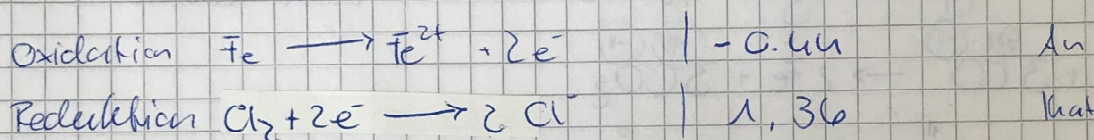 Oxidation Fe → Fe²⁺ + 2e⁻ | -0.44 An
Reduktion Cl₂ + 2e⁻ → 2 Cl⁻ | 1,36 Kat